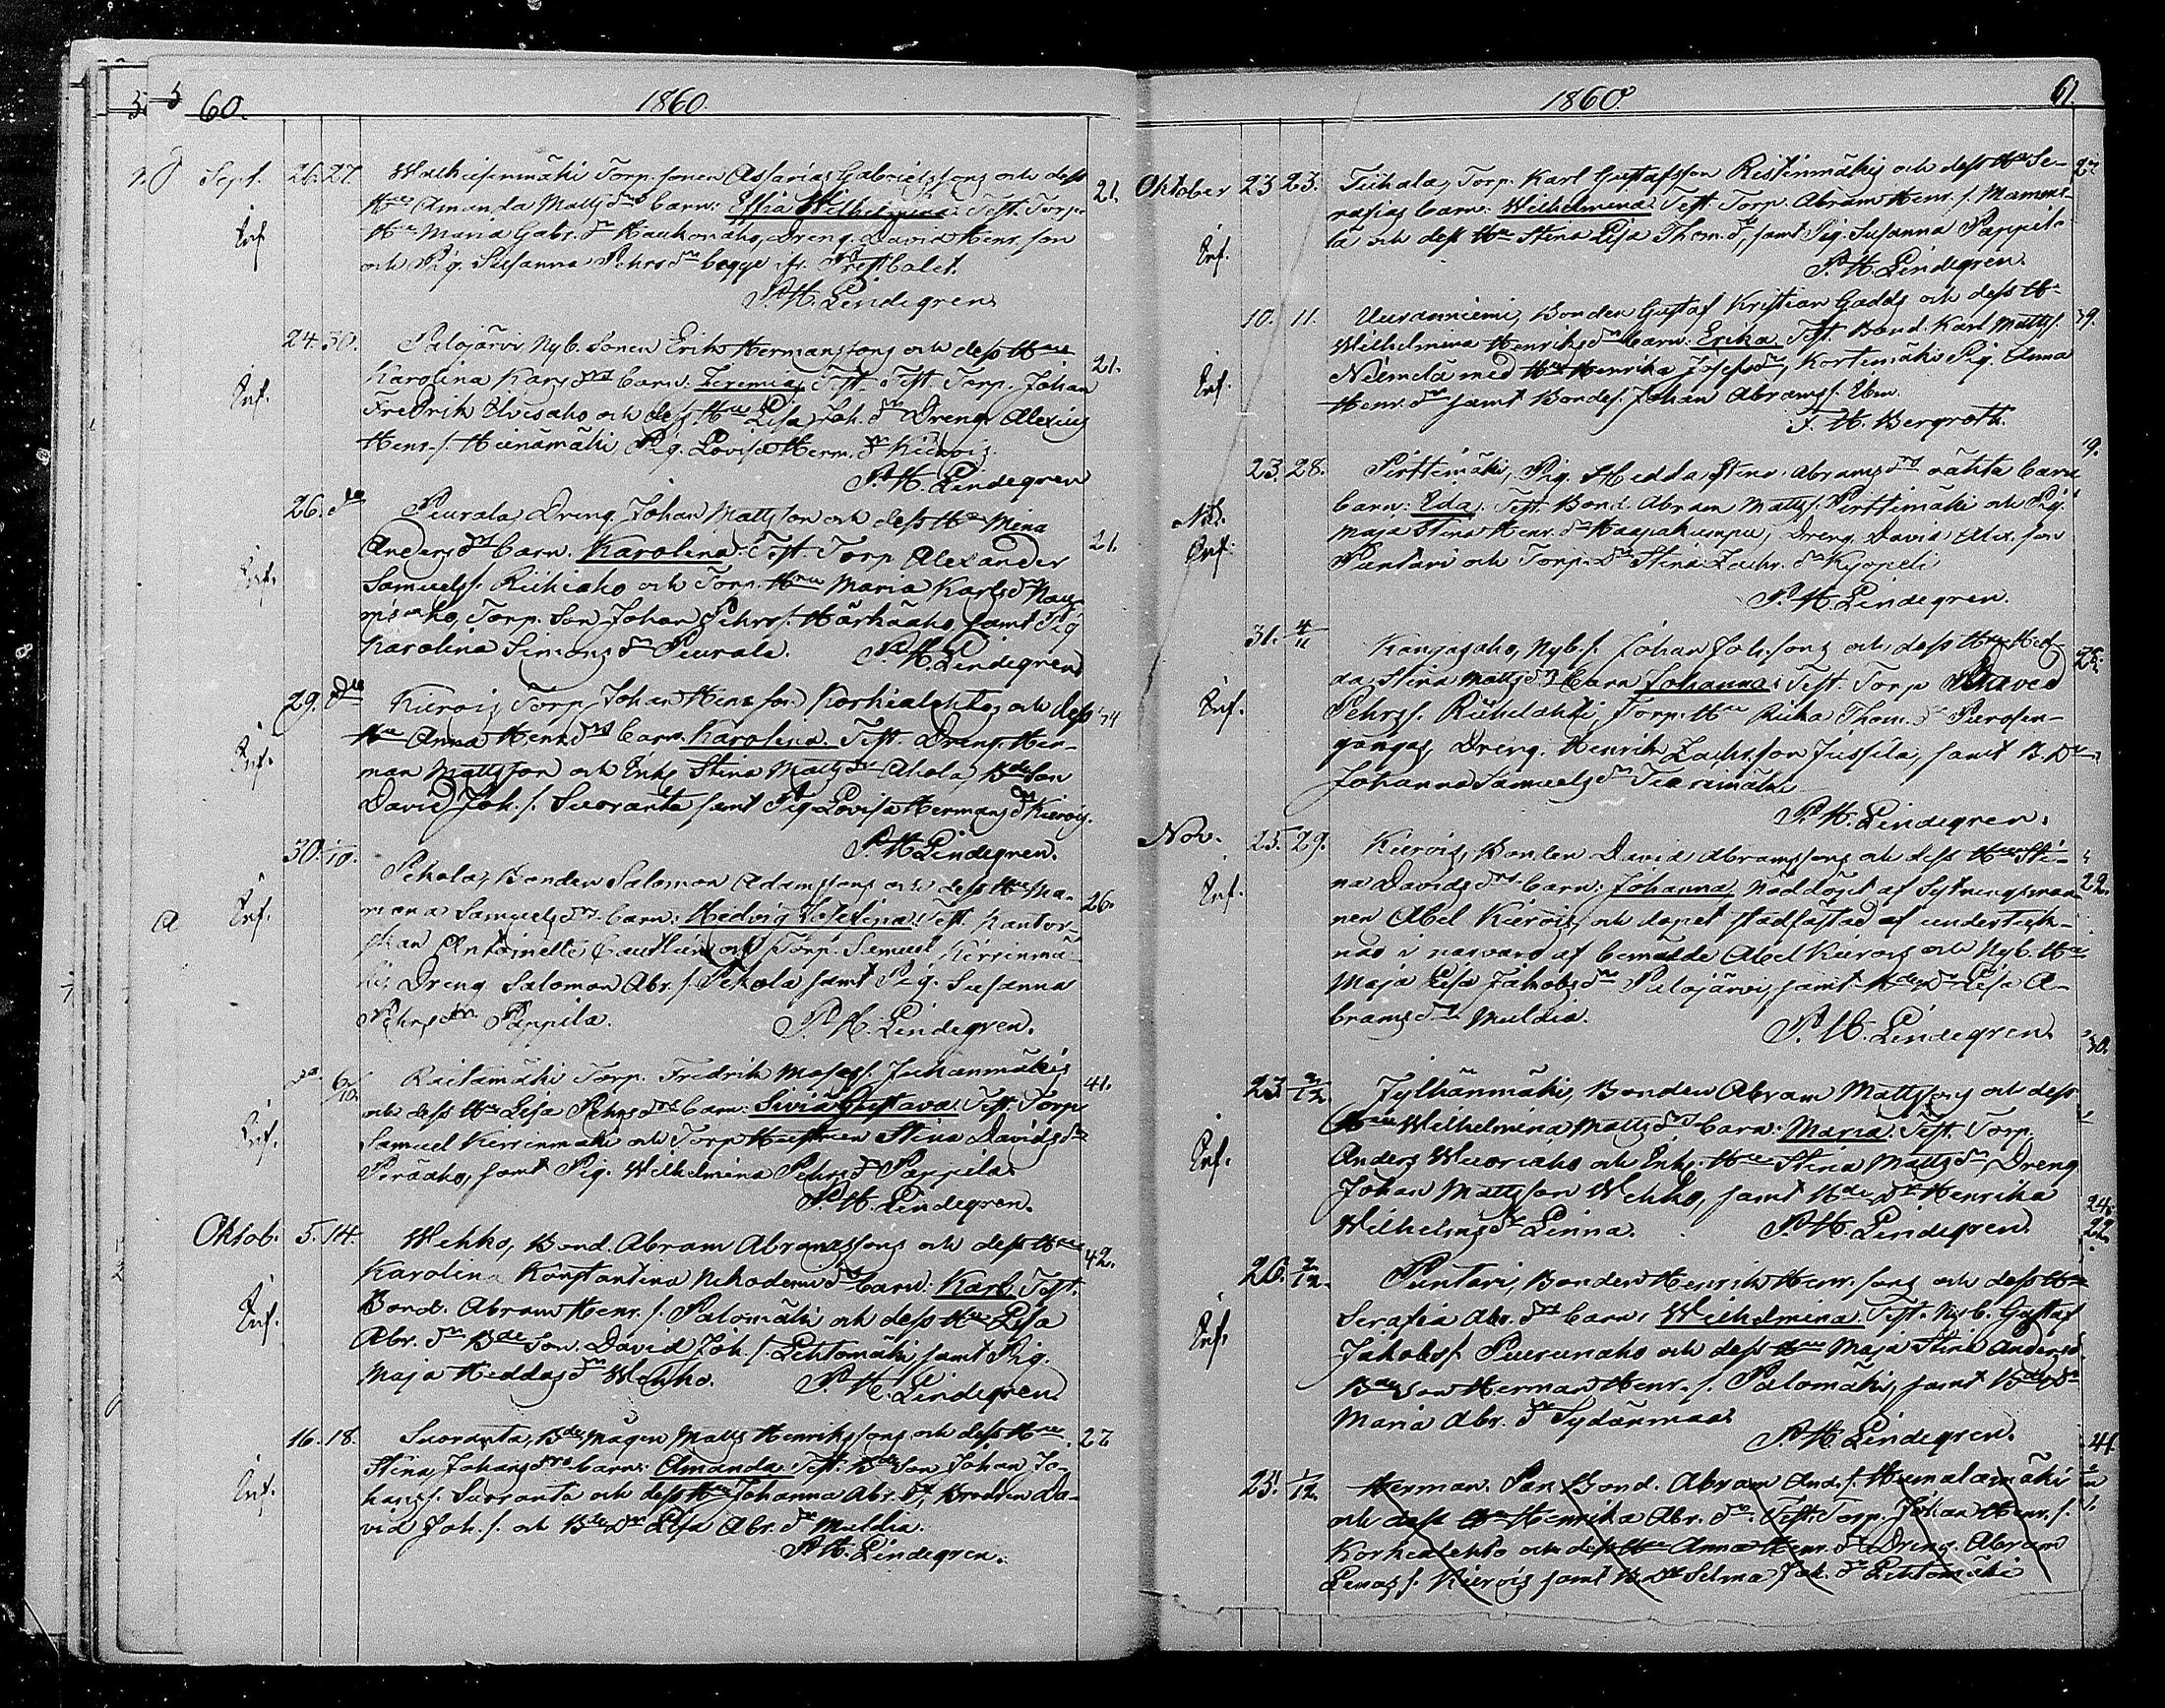 60. 1860.
Sept. 26. 27. Torp. sonen Assarias Gabrielssons och dess 21.
Inf. Hu Amanda Matts drs barn: Wilhelmina. Test. Torp.
Hu Maria Gabr. dr Haukonaho, Dreng. David Henr. son
och Pig. Susanna Pehrs dr begge ifr. Prestbolet.
P. H. Lindegren.
24. 30. Palojärvi Nyb. Sonen Erik Hermanssons och dess Hus 21.
Inf. Karolina Karls drs barn: Jeremias. Test. Test. Torp. Johan
Fredrik och dess Hu Lisa Joh. dr Dreng. Alexius
Henr. s. Heinämäki Pig. Lovisa Herm. dr Kiervis.
P. H. Lindegren
26. do Peurala, Dreng. Johan Mattsson och dess Hu Mina 21.
Inf. Anders drs barn. Karolina. Test. Torp Alexander
Samuels s. Riihiaho och Torp. Hu Maria Karls dr
Torp. Son Johan Pehrs s. Härkäaho samt Pig
Karolina Simons dr Peurala. P. H. Lindegren
29. do Kiervis Torp. Johan Henr. son Korkialehtos och dess 34
Inf. Hu Anna Henr. drs barn. Karolina. Test. Dreng. Her-
man Mattsson och Enk. Stina Matts dr Ahola, Bde Son
David Joh. s. Suoranta samt Pig Lovisa Hermans dr Kiervis.
P. H. Lindegren.
30. /10. Pekola, Bonden Salomon Adamssons och dess Hu Ma- 26.
Inf. riana Samuels drs barn: Hedvig Test. Kantor-
skan Antoinette och Torp. Samuel Kirrinmä-
ki, Dreng Salomon Abr. s. Pekola samt Pig. Susanna
Pehrs dr Pappila. P. H. Lindegren.
do 6/10. Raitamäki Torp. Fredrik Moses s. Juhanmäkis 41.
Inf. och dess Hu Lisa Pehrs drs barn: Sivia Gustava. Test. Torp
Samuel Kirrinmäki och Torp Hustrun Stina Davids dr
Peräaho, samt Pig. Wilhelmina Pehrs dr Pappila.
P. H. Lindegren.
Oktob. 5. 14. Wehko, Bond. Abram Abramssons och dess Hus 42.
Inf. Karolina Konstantina drs barn: Karl. Test.
Bond. Abram Henr. s. Palomäki och dess Hu Lisa
Abr. dr Bde Son. David Joh. s. Lehtomäki samt Pig.
Maja Heddas dr Wehko. P. H. Lindegren.
16. 18. Suoranta, Bde Mågen Matts Henrikssons och dess Hus 27
Inf. Stina Johans drs barn: Amanda. Test. Bde Son Johan Jo-
hans s. Suoranta och dess Hu Johanna Abr. dr, Brodren Da-
vid Joh. s. och Bde Dr Lisa Abr. dr Muldia.
P. H. Lindegren.
1860. 61.
Oktober 23 23. Tiihala, Torp. Karl Gustafsson Ristinmäkis och dess Hu Se-
Inf. rafias barn: Wilhelmina. Test. Torp. Abram Henr. s.
och dess Hu Stina Lisa Thom. dr, samt Pig. Susanna Pappil.
P. H. Lindegren.
10. 11. Uuranniemi, Bonden Gustaf Kristian Gadds och dess Hu 39.
Inf. Wilhelmina Henriks drs barn: Erika. Test. Bond. Karl Matts s.
Niemelä med Hu Henrika Josefs dr, Kortemäki Pig. Anna
Henr. dr samt Bondes. Johan Abrams s.
F. H. Bergroth.
23. 28. Pirttimäki, Pig. Hedda Stina Abrams drs oäkta barn 9.
Inf. barn: Eda. Test. Bond. Abram Matts s. Pirttimäki och Pig.
Maja Stina Henr. dr Haapakumpu, Dreng. David Alex. son
Puntari och Torp. Dr Stina Zachr. dr
P. H. Lindegren.
31. 4/11 Kangasaho, Nyb. s. Johan Joh. sons och dess Hu Hed-
Inf. da Stina Matts drs barn Johanna. Test. Torp David
Pehrs s. Riihilahti, Torp. Hu Thom. dr
Dreng. Henrik Zachr. son Jussila, samt B. Dr
Johanna Samuels dr
P. H. Lindegren.
Nov. 25. 29. Kiervis, Bonden David Abramssons och dess Hu Sti- 22.
Inf. na Davids drs barn: Johanna, nöddöpt af Sytningsman-
nen Abel Kiervis, och dopet stadfästad af underteck-
nad i närvaro af bemälde Abel Kiervis och Nyb. Hu
Maja Lisa Jakobs dr Palojärvi, samt Bde Dr Lisa A-
brams dr Muldia. P. H. Lindegren. 30.
23. 2/12. Jylhänmäki, Bonden Abram Mattssons och dess
Inf. Hus Wilhelmina Matts drs barn: Maria. Test. Torp.
Anders Wuoriaho och Enk. Hu Stina Matts dr Dreng
Johan Mattsson Wehko, samt Bde Dr Henrika
Wilhelms dr Linna. P. H. Lindegren. 22.
26. 2/12. Puntari, Bonden Henrik Henr. sons och dess Hus
Inf. Serafia Abr. drs barn: Wilhelmina. Test. Nyb. Gustaf
Jakobs s. Puurunaho och dess Hu Maja Stina Anders d.
Bde Son Herman Henr. s. Palomäki, samt Bde Dr
Maria Abr. dr Sydänmaa.
P. H. Lindegren. 41.
25. /12. Herman. Bond. Abram And. s. Humalamäki
och dess Hu Henrika Abr. dr. Test. Torp. Johan Henr. s.
Korkealehto och dess Hu Anna Henr. dr Dreng. Abram
Enas s. Kiervis samt B. Dr Selma Joh. dr Lehtomäki